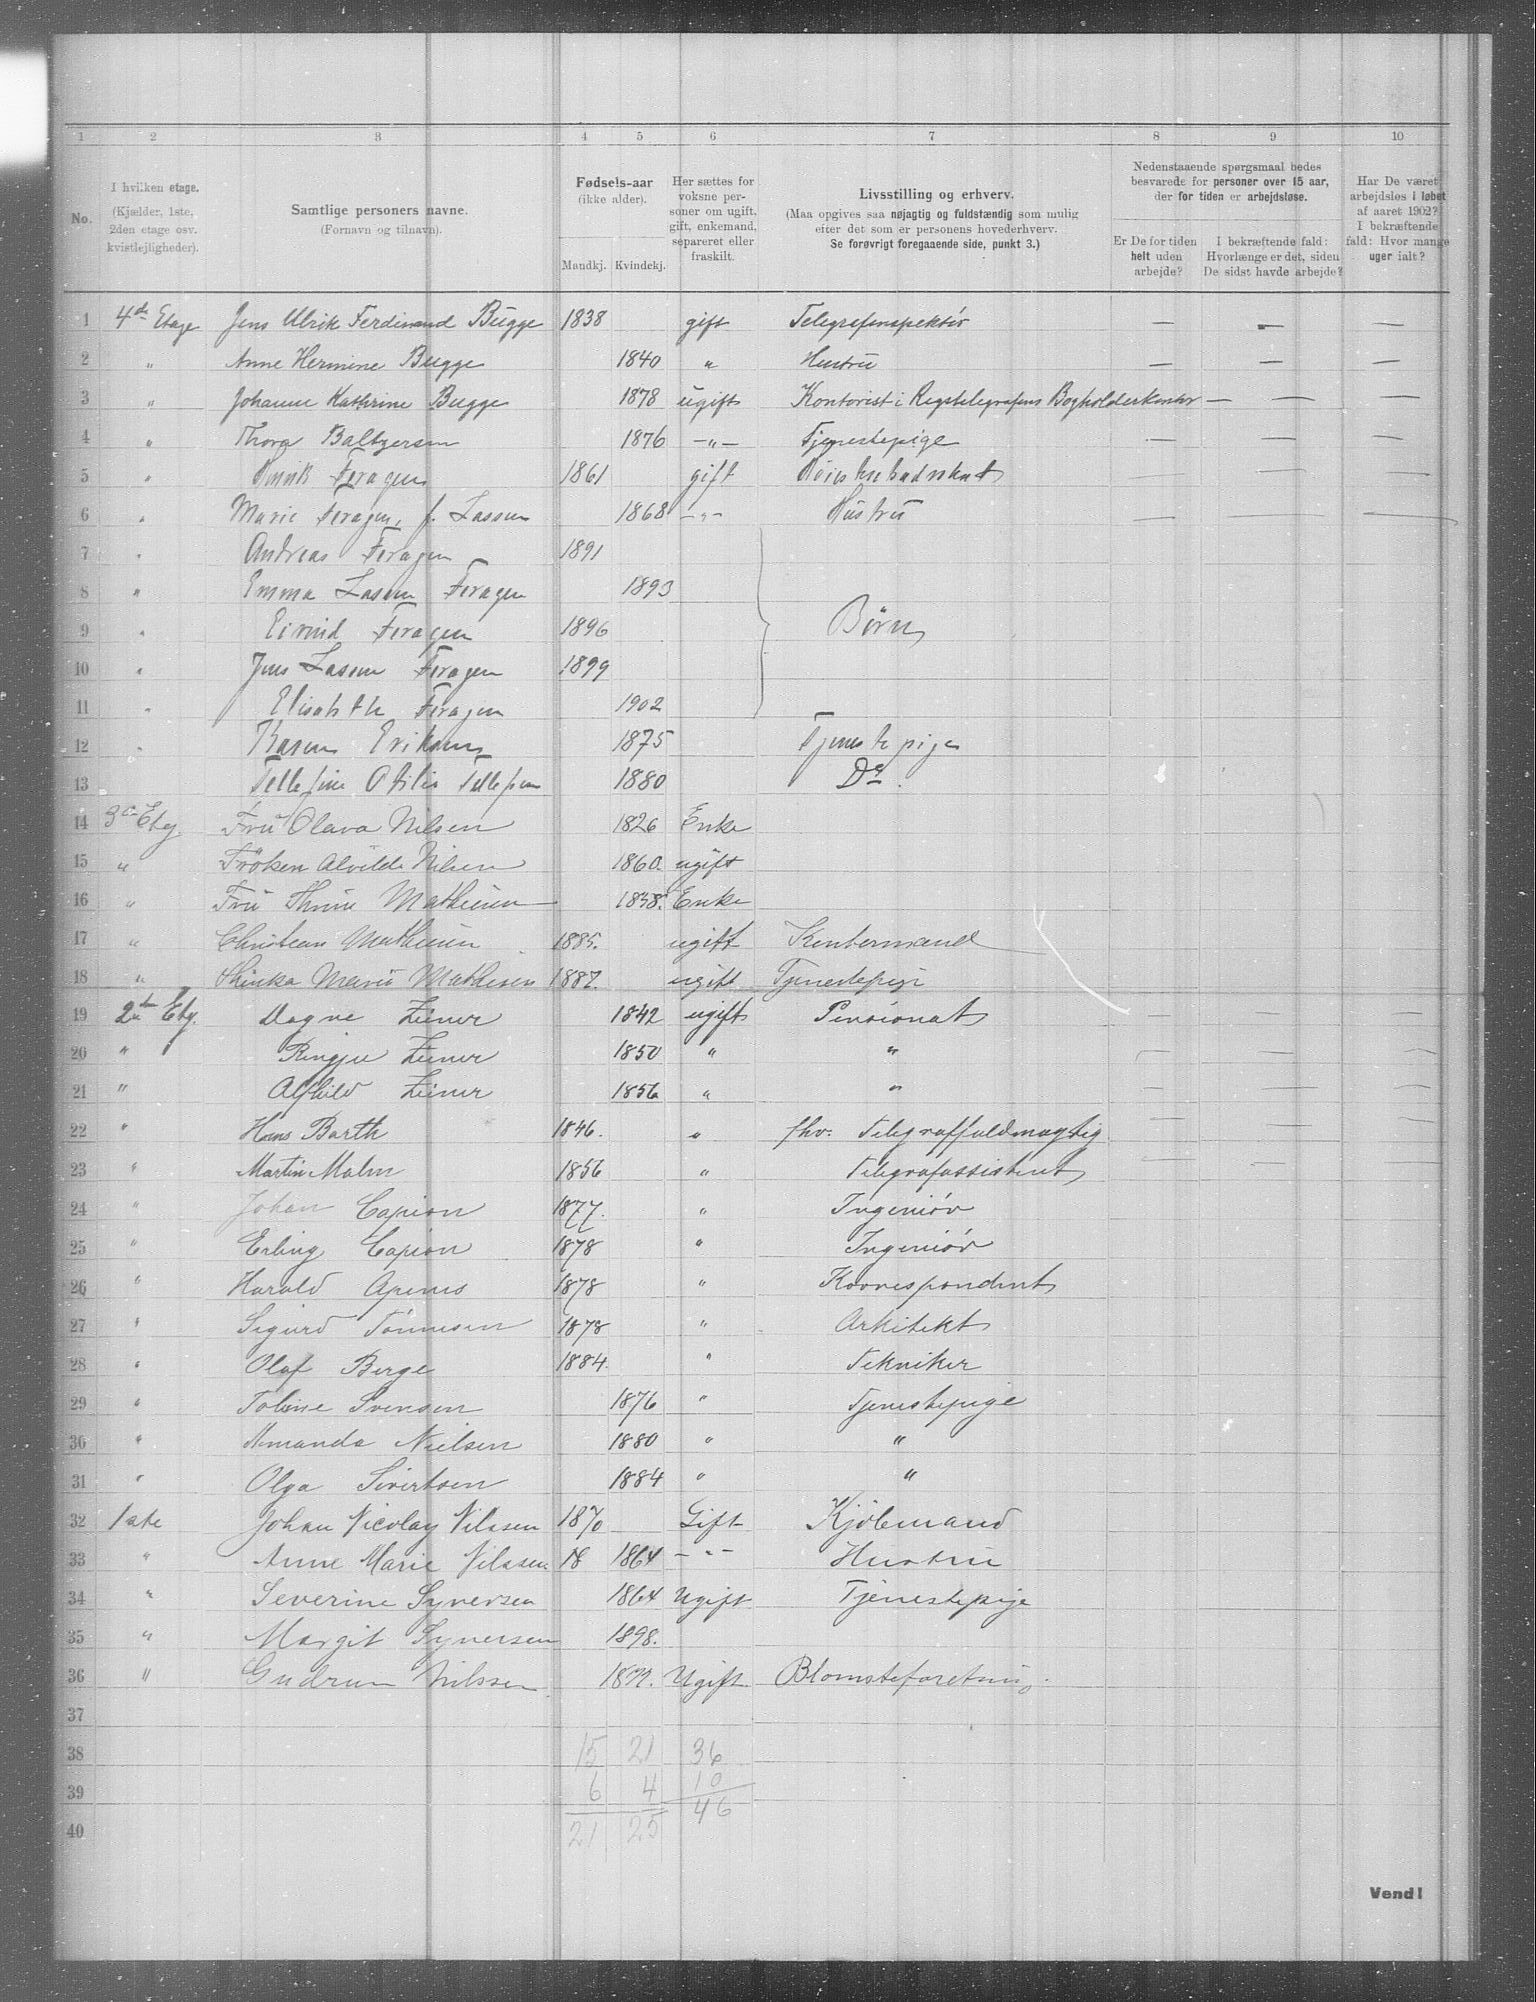 1 2 3 4 5 6 7 8 9 10
No.
I hvilken etage.
(Kjælder, 1ste,
2den etage osv.
kvistlejligheder).
Samtlige personers navne.
(Fornavn og tilnavn).
Fødsels-aar
(ikke alder).
Mandkj. Kvindekj.
Her sættes for
voksne per-
soner om ugift,
gift, enkemand,
separeret eller
fraskilt.
Livsstilling og erhverv.
(Maa opgives saa nøjagtig og fuldstændig som mulig
efter det som er personens hovederhverv.
Se forøvrigt foregaaende side, punkt 3.)
Nedenstaaende spørgsmaal bedes
besvarede for personer over 15 aar,
der for tiden er arbejdsløse.
Er De for tiden
helt uden
arbejde?
I bekræftende fald:
Hvorlænge er det, siden
De sidst havde arbejde?
Har De været
arbejdsløs i løbet
af aaret 1902?
I bekræftende
fald: Hvor mange
uger ialt?
1 4de Etage Jens Ulrik Ferdinand Bugge 1838 gift Telegrafinspektör — — —
2 " Anne Hermine Bugge 1840 " Hustru — — —
3 " Johanne Kathrine Bugge 1878 ugift Kontorist i Rigstelegrafens Bogholderkontor — — —
4 " Thora Baltzersen 1876 —"— Tjenestepige — — —
5 " Feragen 1861 gift — — —
6 " Marie Feragen, f. Lassen 1868 —"— Hustru — — —
7 " Andreas Feragen 1891
8 " Emma Lassen Feragen 1893
9 " Eivind Feragen 1896 Börn
10 " Jens Lassen Feragen 1899
11 " Elisabeth Feragen 1902
12 " Karen Eriksen 1875 Tjenestepige
13 Tellefine Otilie Tellefsen 1880 Do.
14 3die Etg. Fru Olava Nilsen 1826 Enke
15 " Fröken Alvilde Nilsen 1860. ugift
16 " Fru Mathiesen 1838. Enke
17 " Christian Mathiesen 1885. ugift Kontormand
18 " Marie Mathisen 1887. ugift Tjenestepige
19 2den Etg. Dagne Zeiner 1842 ugift Pensionat — — —
20 " Zeiner 1850 " " — — —
21 " Alfhild Zeiner 1856 " " — — —
22 " Hans Barth 1846. " fhv. Telegraffuldmægtig — — —
23 " Martin Malm 1856 " Telegrafassistent — — —
24 " Johan Capion 1877. " Ingeniör
25 " Erling Capion 1878 " Ingeniör
26 " Harald Apenes 1878 " Korrespondent
27 " Sigurd Tönnesen 1878 " Arkitekt
28 " Olaf Berge 1884. " Tekniker
29 " Toline Svensen 1876 " Tjenestepige
30 " Amanda Nielsen 1880 " "
31 " Olga Sivertsen 1884 " "
32 1ste Johan Nicolay Nilssen 1870 Gift Kjöbmand
33 " Anne Marie Nilssen 18 1864 —"— Hustru
34 " Severine Syversen 1864 Ugift Tjenestepige
35 " Margit Syversen 1898.
36 " Gudrun Nilssen Ugift Blomsteforetning.
37
38 15 21 36
39 6 4 10
46
40 21 25
Vend!